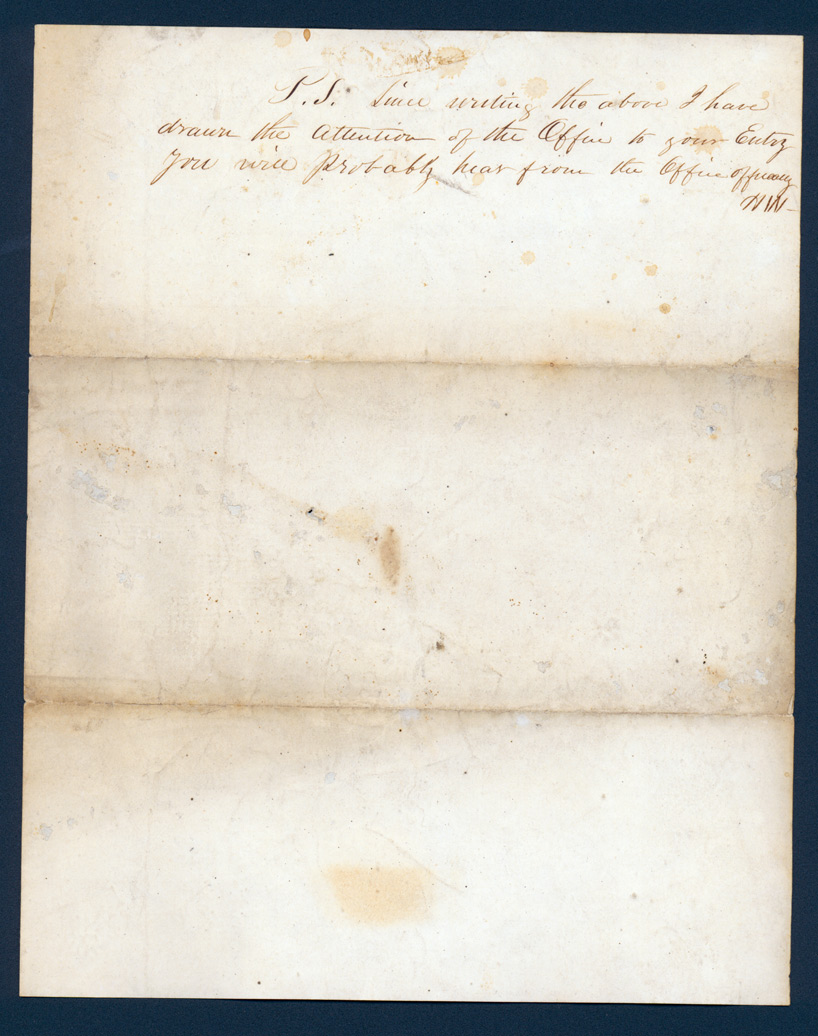 P.S. Since writing the above I have
drawn the Attention of the Office to your Entry
You will Probably hear from the Office